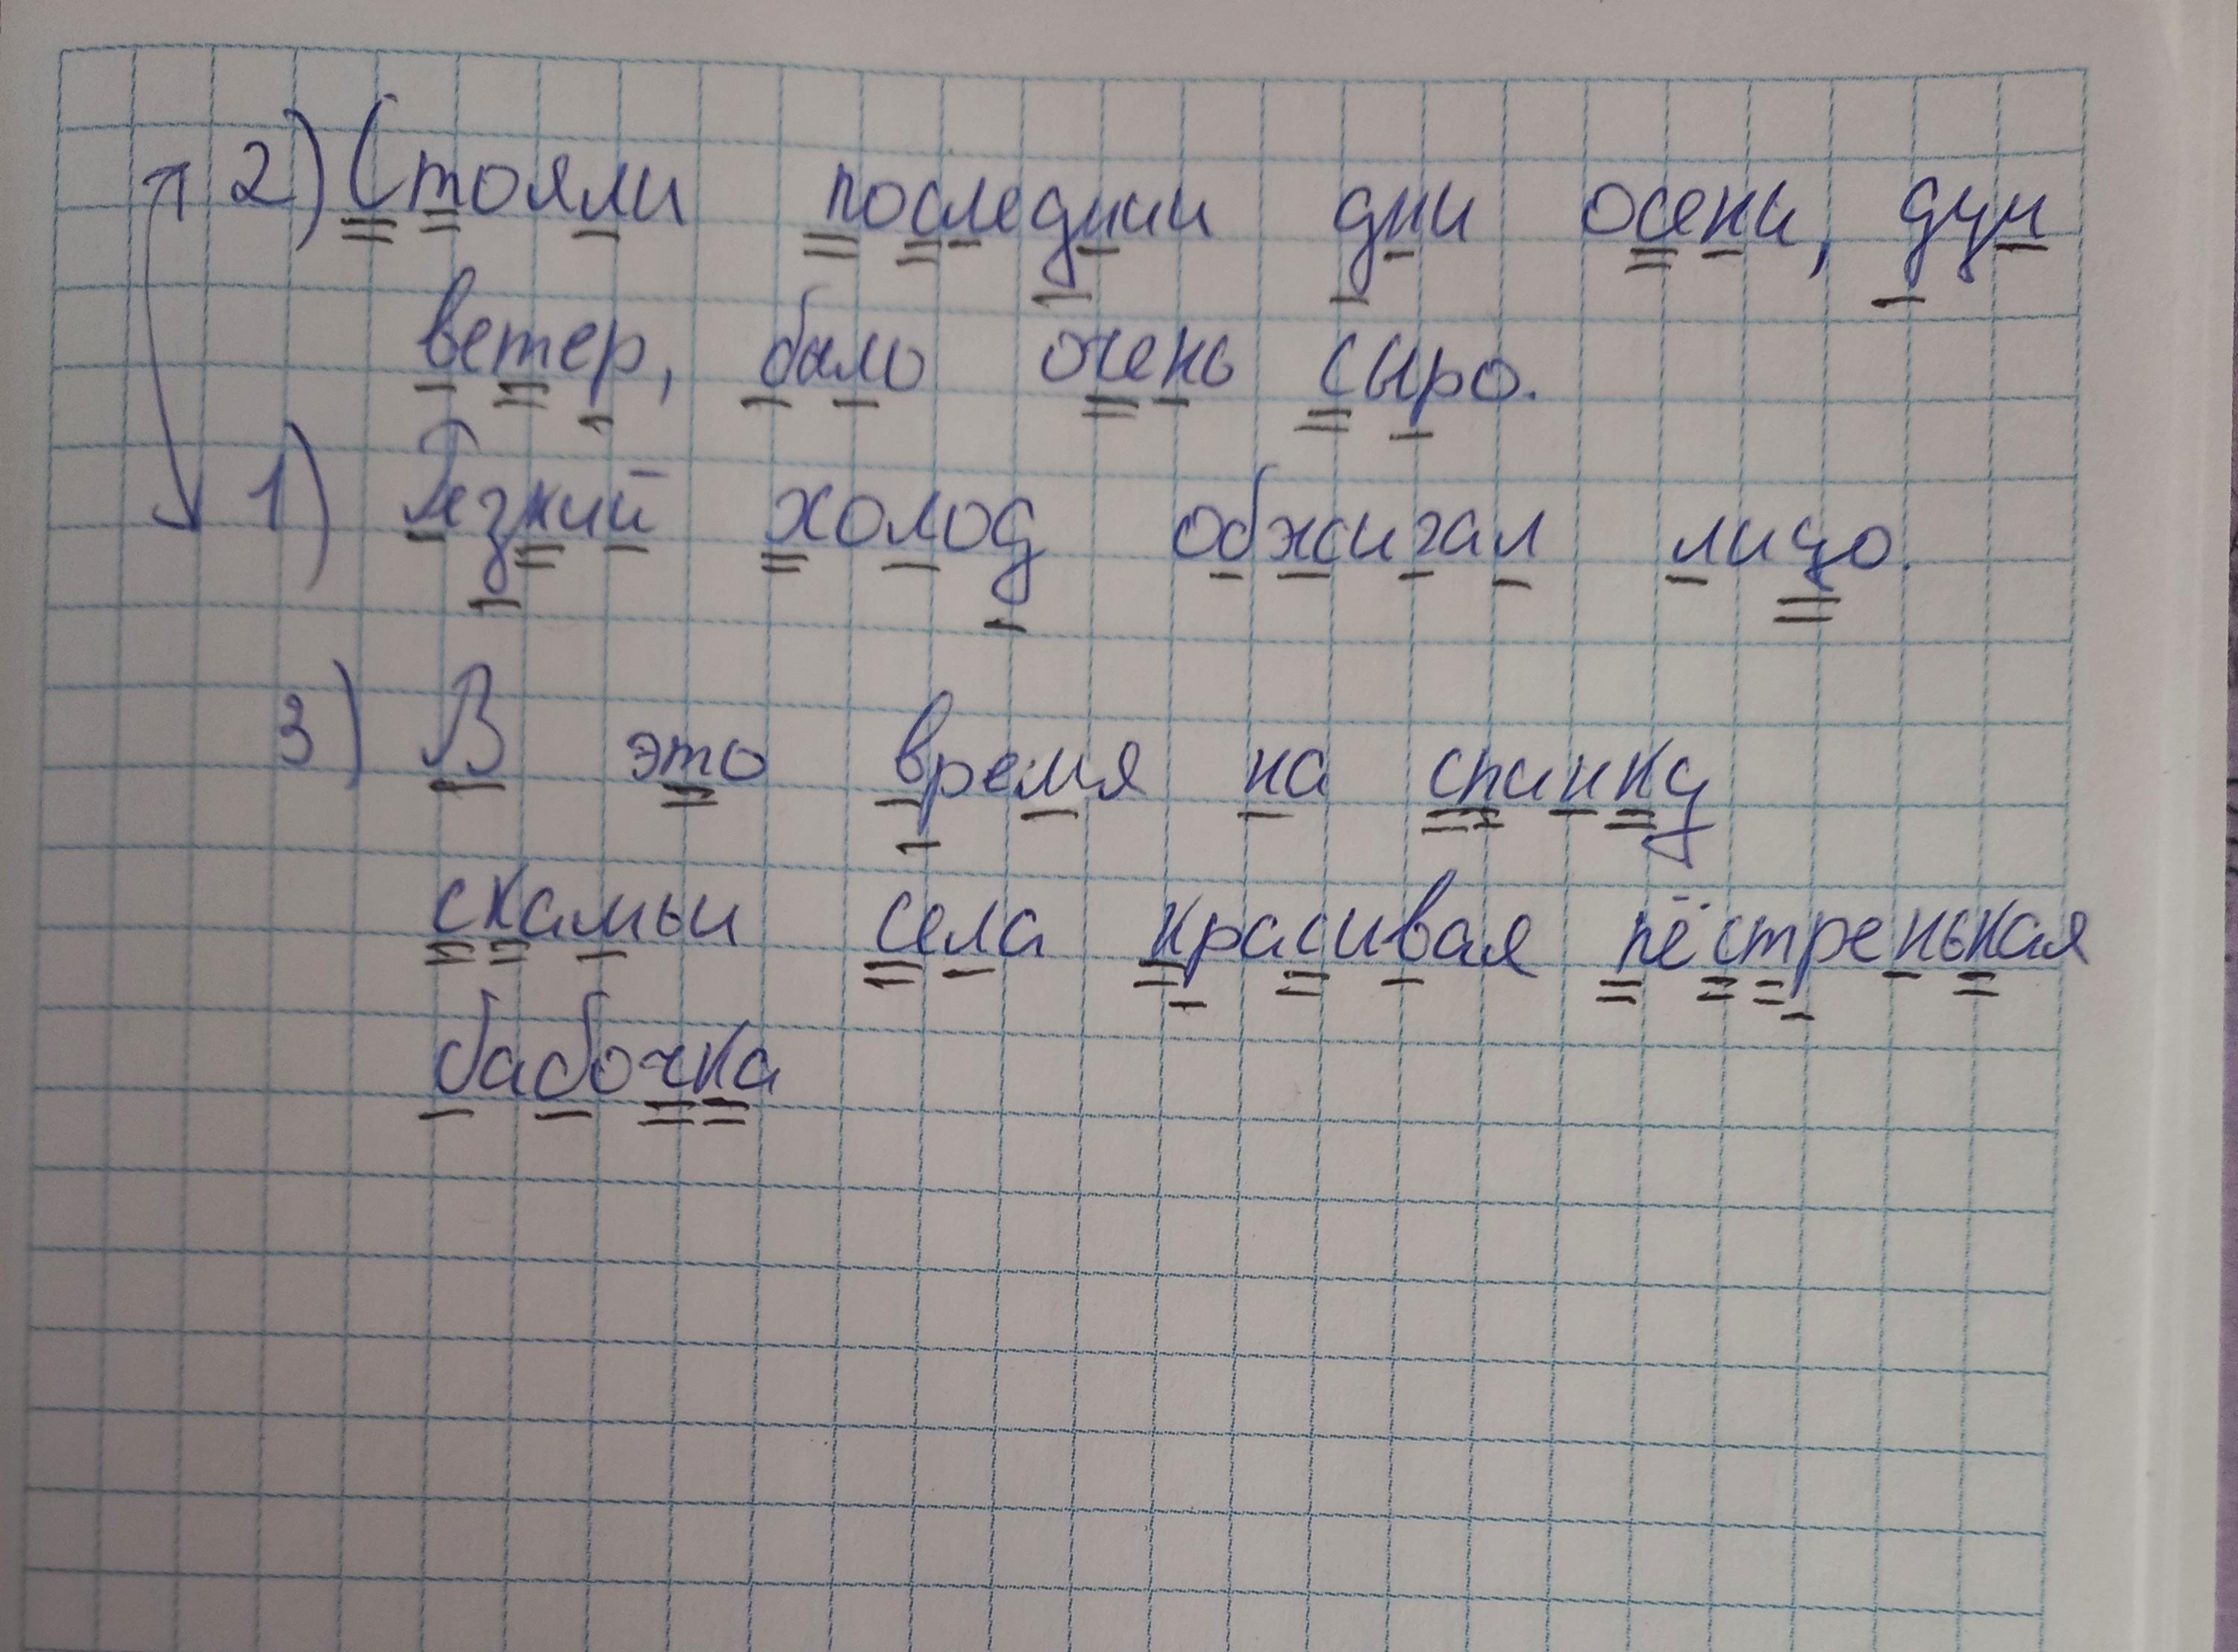 2) Стояли последнии дни осени, дул
ветер, было очень сыро.
1) Резкий холод обжигал лицо.
3) В это время на спинку
скамьи села красивая пёстренькая
бабочка